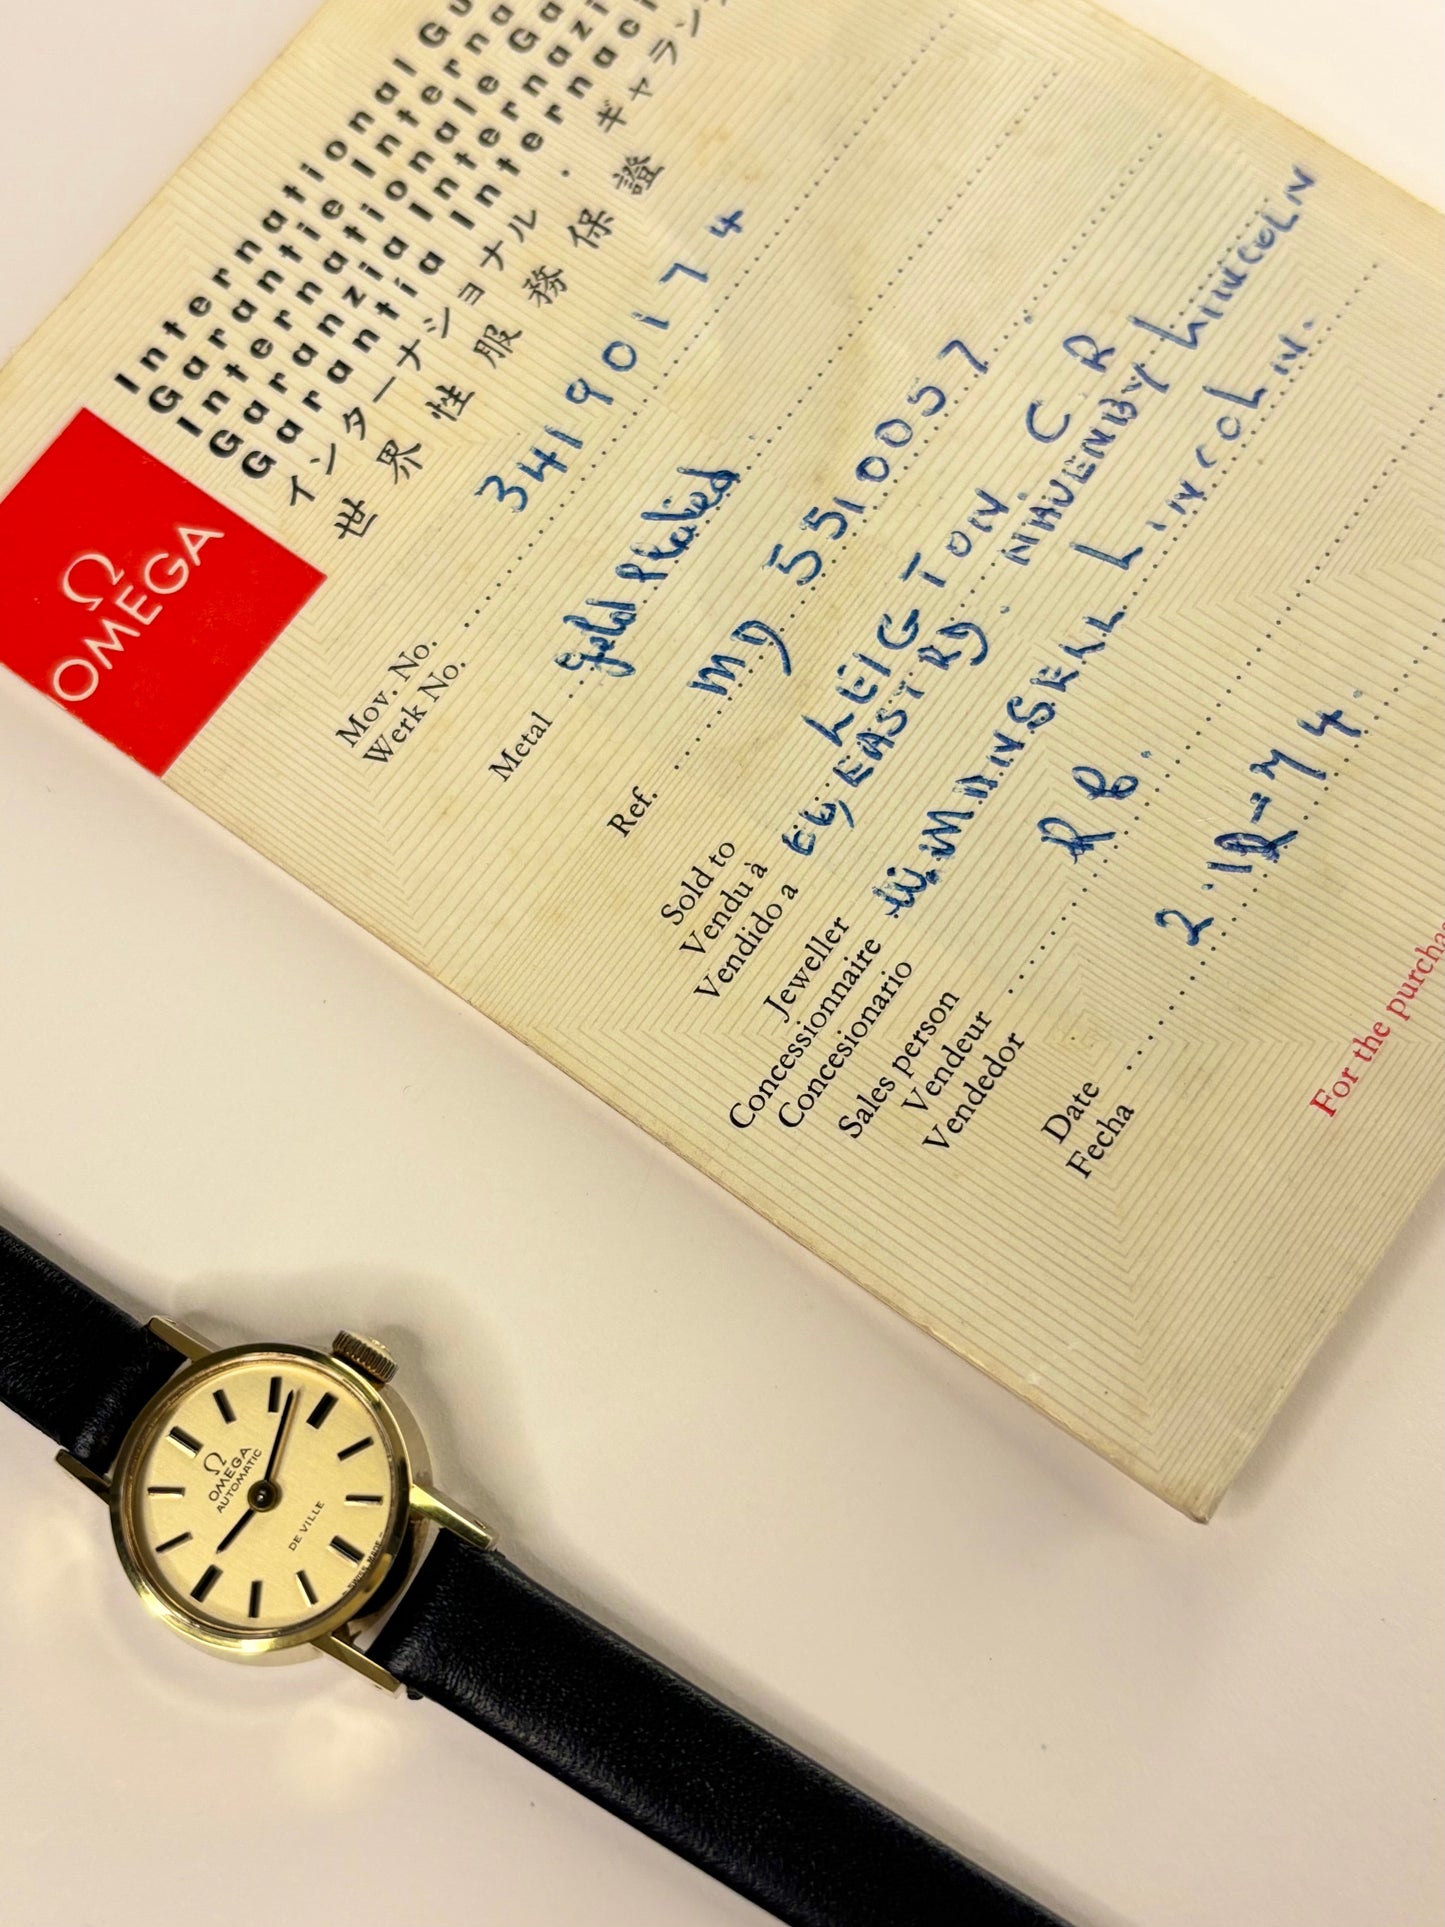 International Gu
Garantie Interna
Internationale Ga
Garanzia Internazi
Garantia Internaci
インターナショナル・ギャラン
世界性服務保證
Ω
OMEGA
Mov. No. 34190174
Werk No.
Metal Gold Plated
Ref. MD 5510057.
Sold to LEIGTON C R
Vendu à EAST RD. NAVENBY LINCOLN
Vendido a
Jeweller
Concessionnaire W. MANSELL LINCOLN.
Concesionario
Sales person
Vendeur R B.
Vendedor
Date 2.12-74.
Fecha
For the purchas
Ω
OMEGA
AUTOMATIC
DE VILLE
SWISS MADE